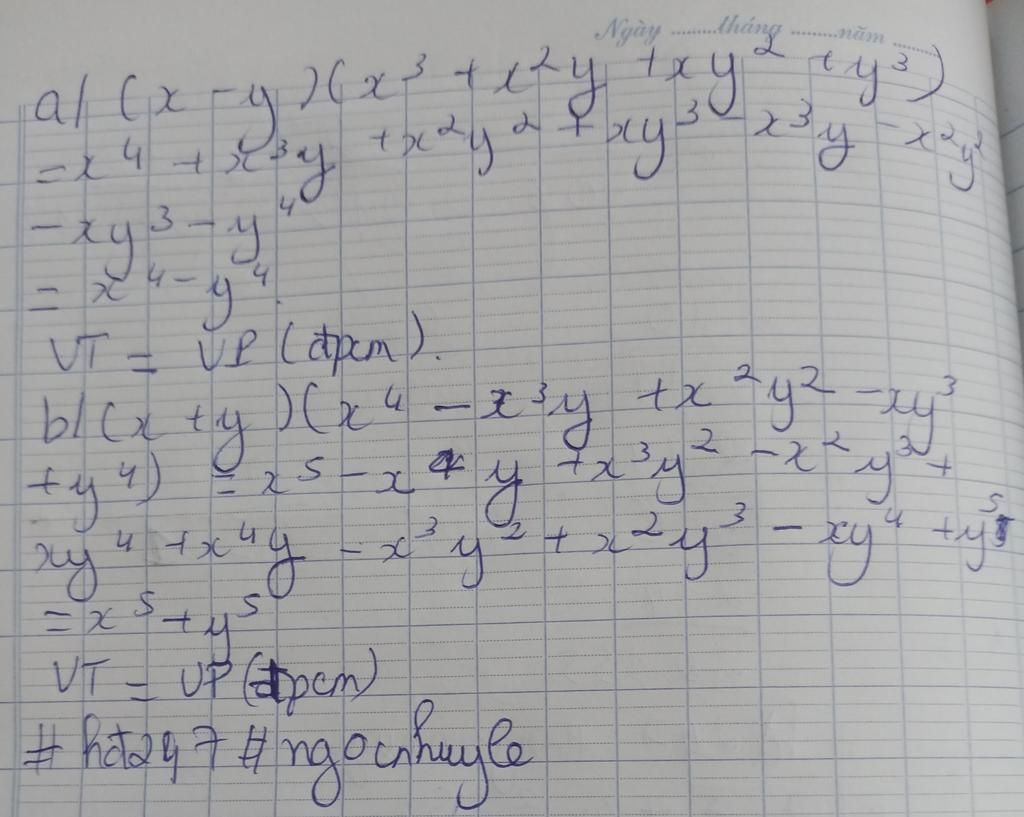 Ngày ........tháng ........năm ......
a/ (x - y)(x³ + x²y + xy² + y³)
= x⁴ + x³y + x²y² + xy³ - x³y - x²y²
- xy³ - y⁴
= x⁴ - y⁴.
VT = VP (đpcm).
b/ (x + y)(x⁴ - x³y + x²y² - xy³
+ y⁴) = x⁵ - x⁴y + x³y² - x²y³ +
xy⁴ + x⁴y - x³y² + x²y³ - xy⁴ + y⁵
= x⁵ + y⁵
VT = VP (đpcm)
# hđ247 # ngocnhuyle